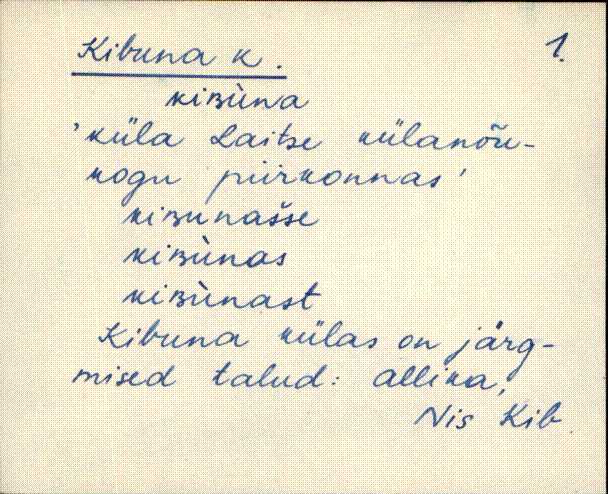 Kibuna k. 1.
kiʙùna
'küla Laitse külanõu-
kogu piirkonnas'
kiʙunašse
kiʙùnas
kiʙùnast
Kibuna külas on järg-
mised talud: allika,
Nis Kib